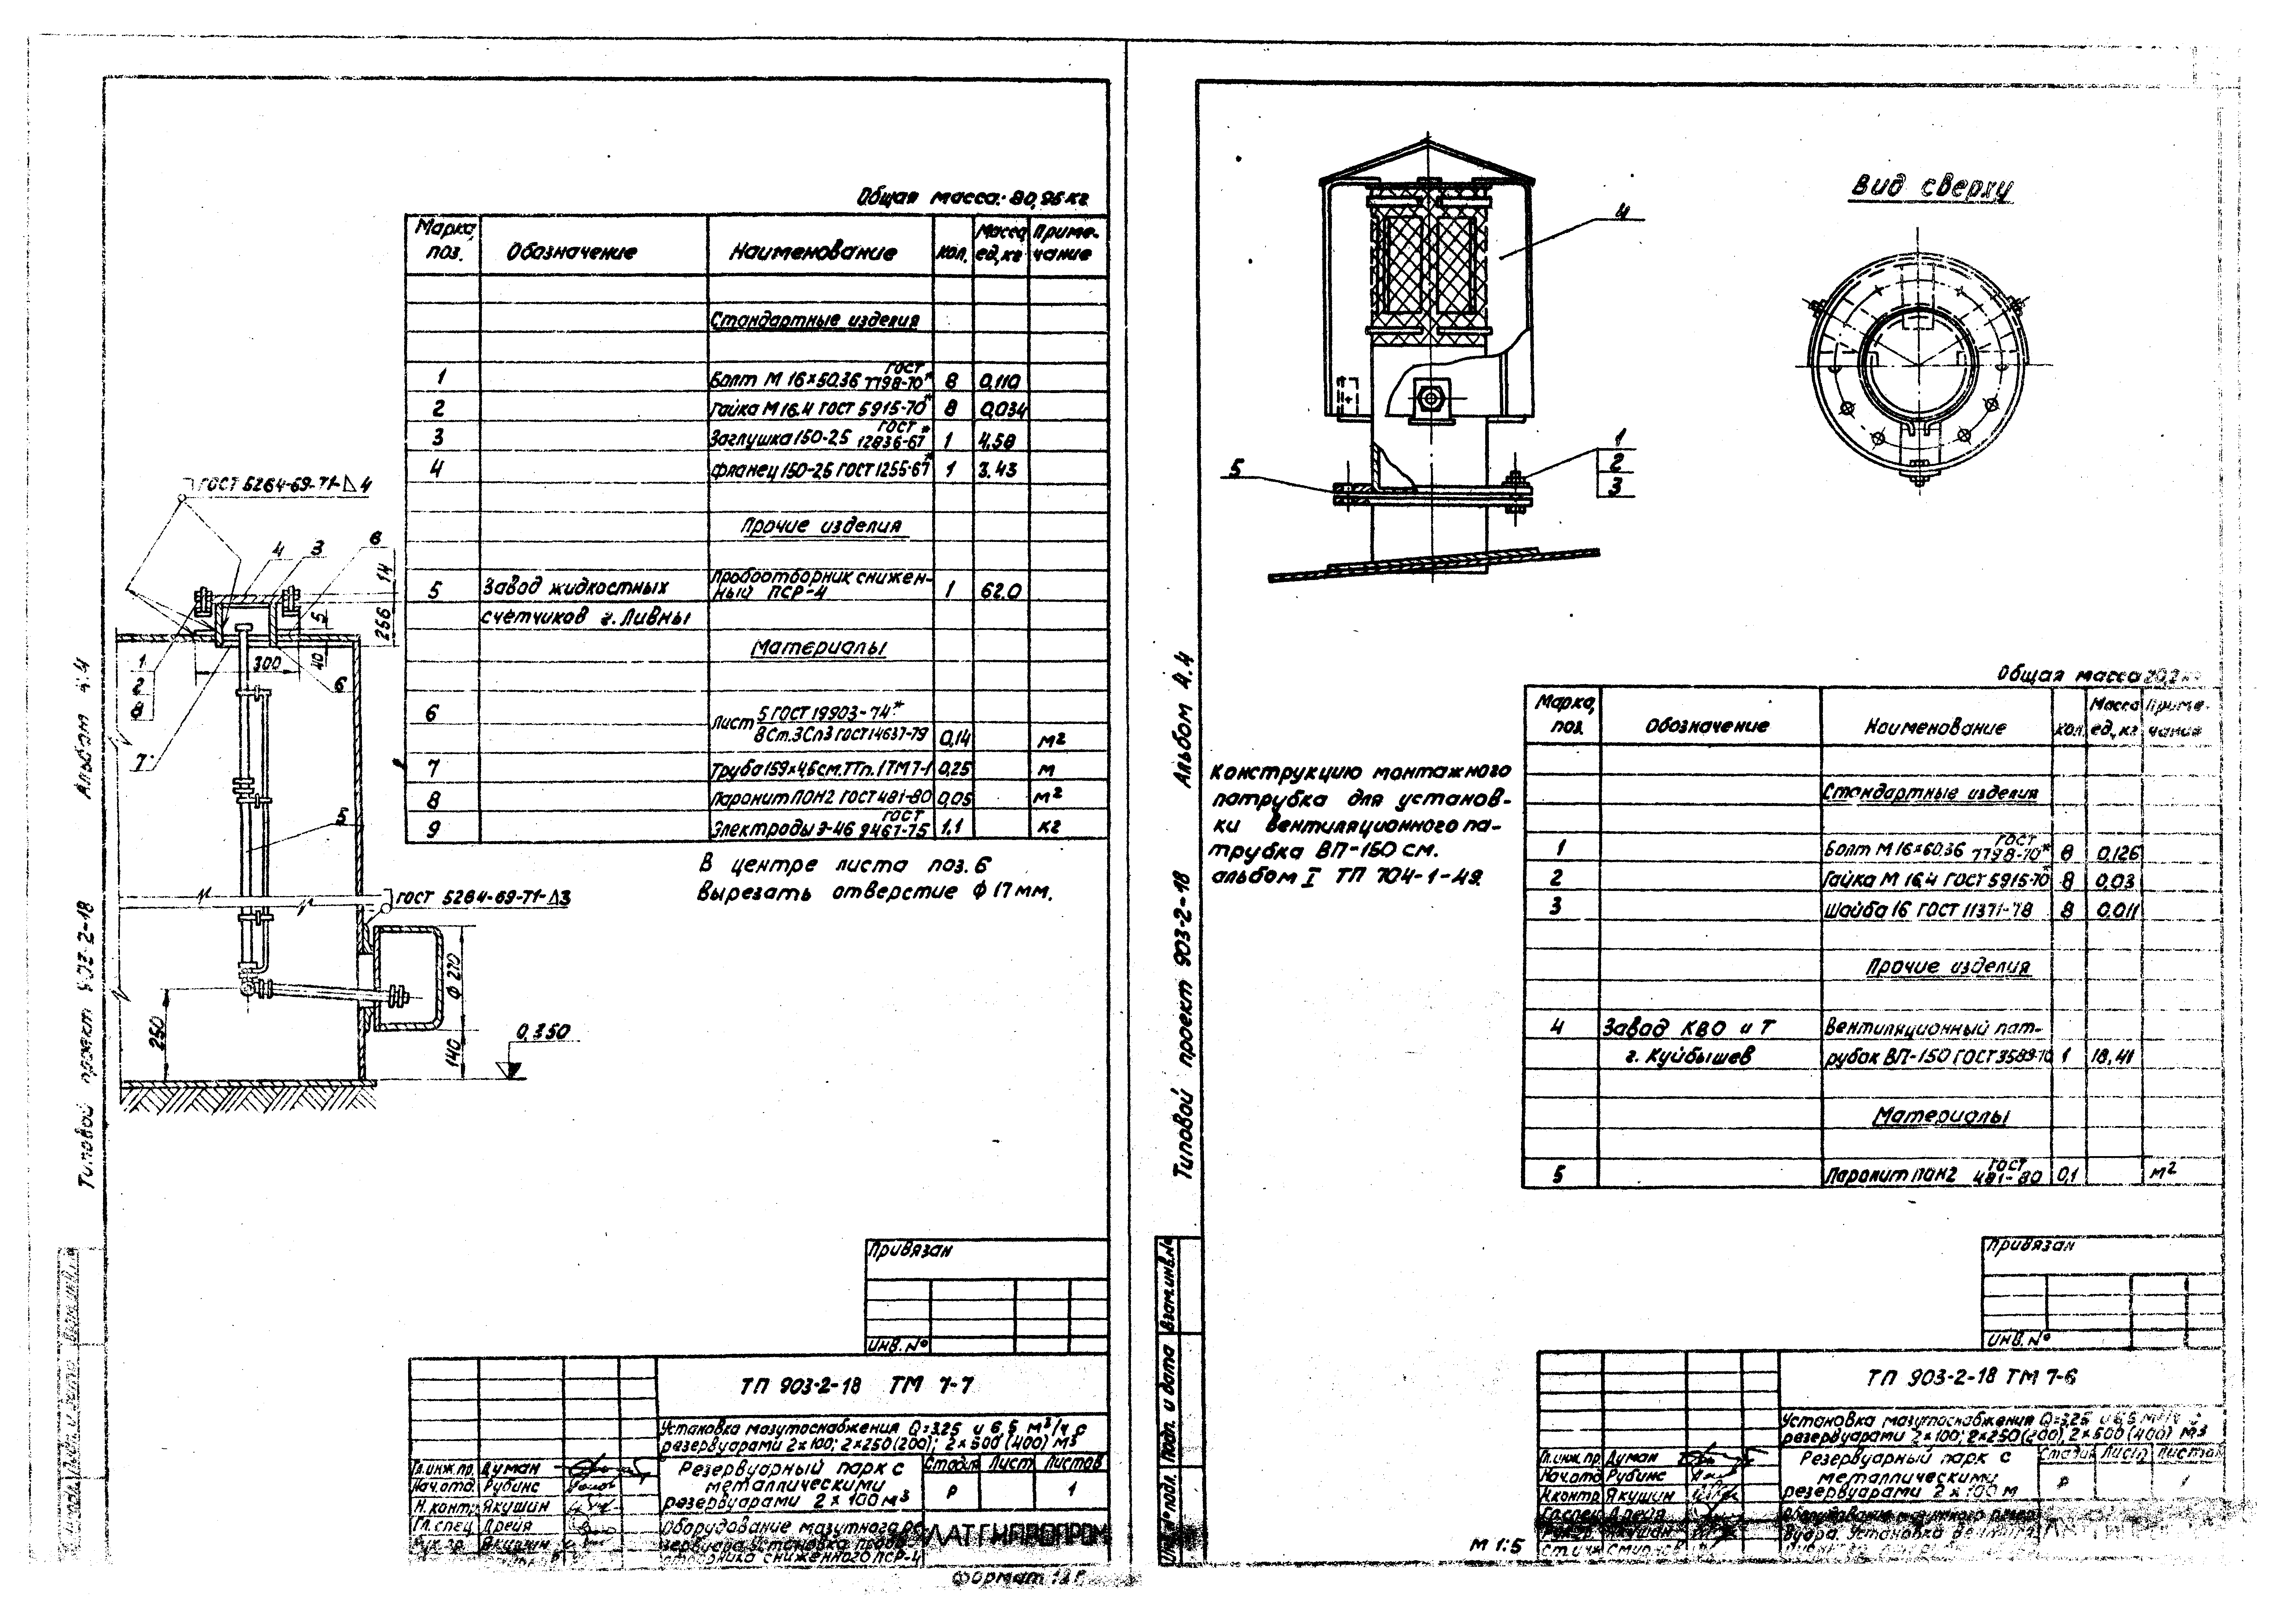 Общая масса: 80,95 кг
Марка, поз. Обозначение Наименование кол. Масса ед, кг Приме-чание
Стандартные изделия
1 Болт М 16×50.36 ГОСТ 7798-70* 8 0,110
2 Гайка М 16.4 ГОСТ 5915-70* 8 0,034
3 Заглушка 150-2,5 ГОСТ 12836-67* 1 4.58
4 Фланец 150-2,5 ГОСТ 1255-67* 1 3.43
Прочие изделия
5 Завод жидкостных Пробоотборник снижен-ный ПСР-4 1 62.0
счетчиков г. Ливны
Материалы
6 Лист 5 ГОСТ 19903-74* / ВСт.3Сп3 ГОСТ 14637-79 0,14 м²
7 Труба 159×4,5 см. ТТп. 1 ТМ 7-1 0,25 м
8 Паронит ПОН2 ГОСТ 481-80 0,05 м²
9 Электроды Э-46 ГОСТ 9467-75 1,1 кг
В центре листа поз. 6
вырезать отверстие ф 17 мм.
ГОСТ 5264-69-Т1-△4
4 3 8
14
256
5
40
300
1
2
8
6
7
5
ГОСТ 5264-69-Т1-△3
ф 270
250
140
0,350
Альбом 4.4
Типовой проект 903-2-18
Привязан
Инв. №
ТП 903-2-18 ТМ 7-7
Установка мазутоснабжения Q=3,25 и 6,5 м³/ч с
резервуарами 2×100; 2×250(200); 2×500(400) м³
Гл.инж.пр. Думан
Нач.отд. Рубинс
Н.контр. Якушин
Гл.спец. Дрейя
Рук.гр. Якушин
Резервуарный парк с
металлическими
резервуарами 2×100 м³
Стадия Лист Листов
Р 1
Оборудование мазутного ре-
зервуара. Установка пробо-
отборника сниженного ПСР-4
ЛАТГИПРОПРОМ
Формат 12Г
Вид сверху
4
5
1
2
3
Общая масса 20,2 кг
Марка, поз. Обозначение Наименование кол. Масса ед., кг Приме-чание
Стандартные изделия
1 Болт М 16×60.36 ГОСТ 7798-70* 8 0,126
2 Гайка М 16.4 ГОСТ 5915-70* 8 0,03
3 Шайба 16 ГОСТ 11371-78 8 0,011
Прочие изделия
4 Завод КВО и Т Вентиляционный пат-
г. Куйбышев рубок ВП-150 ГОСТ 3589-70 1 18,41
Материалы
5 Паронит ПОН2 ГОСТ 481-80 0,1 м²
Конструкцию монтажного
патрубка для установ-
ки вентиляционного па-
трубка ВП-150 см.
альбом I ТП 704-1-49.
Альбом 4.4
Типовой проект 903-2-18
Взам.инв.№
Подп. и дата
Инв.№ подл.
Привязан
Инв. №
ТП 903-2-18 ТМ 7-6
Установка мазутоснабжения Q=3,25 и 6,5 м³/ч с
резервуарами 2×100; 2×250(200), 2×500(400) м³
Гл.инж.пр. Думан
Нач.отд. Рубинс
Н.контр. Якушин
Гл.спец. Дрейя
Рук.гр. Якушин
Ст.инж. Смирнов
Резервуарный парк с
металлическими
резервуарами 2×100 м
Стадия Лист Листов
Р 1
Оборудование мазутного резер-
вуара. Установка
М 1:5